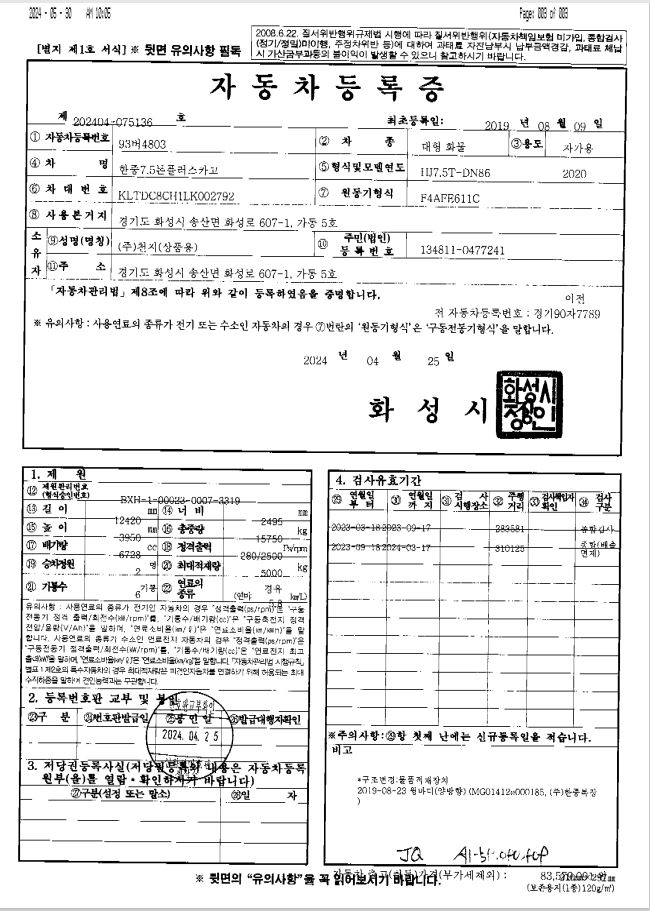 2024 - 05 - 30 AM 10:05 Page: 003 of 003
[별지 제1호 서식] ※ 뒷면 유의사항 필독
2008.6.22. 질서위반행위규제법 시행에 따라 질서위반행위(자동차책임보험 미가입, 종합검사
(정기/정밀)미이행, 주정차위반 등)에 대하여 과태료 자진납부시 납부금액경감, 과태료 체납
시 가산금부과등의 불이익이 발생할 수 있으니 참고하시기 바랍니다.
자동차등록증
제 202404-075136 호 최초등록일: 2019 년 08 월 09 일
① 자동차등록번호 93버4803 ② 차 종 대형 화물 ③용도 자가용
④ 차 명 한중7.5톤플러스카고 ⑤ 형식및모델연도 HJ7.5T-DN86 2020
⑥ 차대번호 KLTDC8CH1LK002792 ⑦ 원동기형식 F4AFE611C
⑧ 사용본거지 경기도 화성시 송산면 화성로 607-1, 가동 5호
소유자 ⑨성명(명칭) (주)천지(상품용) ⑩ 주민(법인)등록번호 134811-0477241
⑪주 소 경기도 화성시 송산면 화성로 607-1, 가동 5호
「자동차관리법」제8조에 따라 위와 같이 등록하였음을 증명합니다.
이전
전 자동차등록번호 : 경기90자7789
※ 유의사항 : 사용연료의 종류가 전기 또는 수소인 자동차의 경우 ⑦번란의 '원동기형식'은 '구동전동기형식'을 말합니다.
2024 년 04 월 25 일
화성시
1. 제 원
⑫ 제원관리번호(형식승인번호) BXH-1-00023-0007-3319
⑬ 길 이 12420 mm ⑭ 너 비 2495 mm
⑮ 높 이 3950 mm ⑯ 총중량 15750 kg
⑰ 배기량 6728 cc ⑱ 정격출력 280/2500 Ps/rpm
⑲ 승차정원 2 명 ⑳ 최대적재량 5000 kg
㉑ 기통수 6 기통 ㉒ 연료의 종류 경유 (연비 km/ℓ)
유의사항 : 사용연료의 종류가 전기인 자동차의 경우 "정격출력(ps/rpm)"은 "구동
전동기 정격 출력/회전수(kW/rpm)"를, "기통수/배기량(cc)"은 "구동축전지 정격
전압/용량(V/Ah)"을 말하며, "연료소비율(km/ℓ)"은 "연료소비율(km/kWh)"을 말
합니다. 사용연료의 종류가 수소인 연료전지 자동차의 경우 "정격출력(ps/rpm)"은
"구동전동기 정격출력/회전수(kW/rpm)"를, "기통수/배기량(cc)"은 "연료전지 최고
출력(kW)"을 말하며, "연료소비율(km/ℓ)"은 "연료소비율(km/kg)"를 말합니다. 「자동차관리법 시행규칙」
별표 1 제2호의 특수자동차의 경우 최대적재량은 피견인자동차를 연결하기 위해 허용되는 최대
수직하중을 말하며 견인능력과는 무관합니다.
2. 등록번호판 교부 및 봉인
㉓구 분 ㉔번호판발급일 ㉕봉인일 ㉖발급대행자확인
2024. 04. 25
3. 저당권등록사실(저당권등록의 내용은 자동차등록
원부(을)를 열람·확인하시기 바랍니다)
㉗구분(설정 또는 말소) ㉘일 자
4. 검사유효기간
㉙ 연월일부터 ㉚ 연월일까지 ㉛ 검사시행장소 ㉜ 주행거리 ㉝ 검사책임자확인 ㉞ 검사구분
2023-03-18 2023-09-17 283581 종합검사
2023-09-18 2024-03-17 310125 종합(배출면제)
※주의사항:㉙항 첫째 난에는 신규등록일을 적습니다.
비고
*구조변경:물품적재장치
2019-08-23 윙바디(양방향) (MG01412m000185, (주)한중특장
)
JQ
자동차 출고(취득)가격(부가세제외) : 83,570,001원
※ 뒷면의 "유의사항"을 꼭 읽어보시기 바랍니다.
(보존용지(1종)120g/㎡)